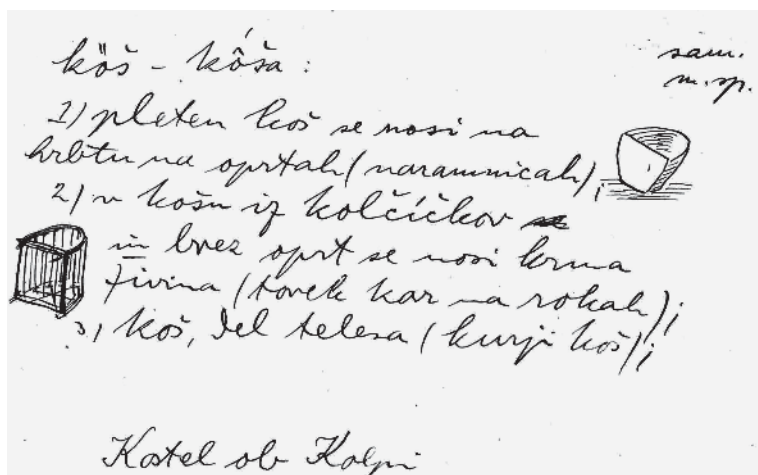 köš - kôša :
sam.
m. sp.
1) pleten koš se nosi na
hrbtu na oprtah (naramnicah);
2) v košu iz kolčičkov
in brez oprt se nosi krma
živina (tovek kar na rokah);
3) koš, del telesa (kurji koš);
Kostel ob Kolpi